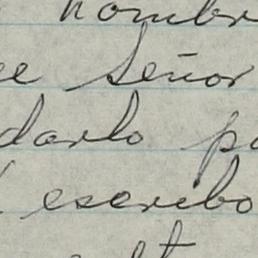 nombr
ee Señor
darlo po
escribo